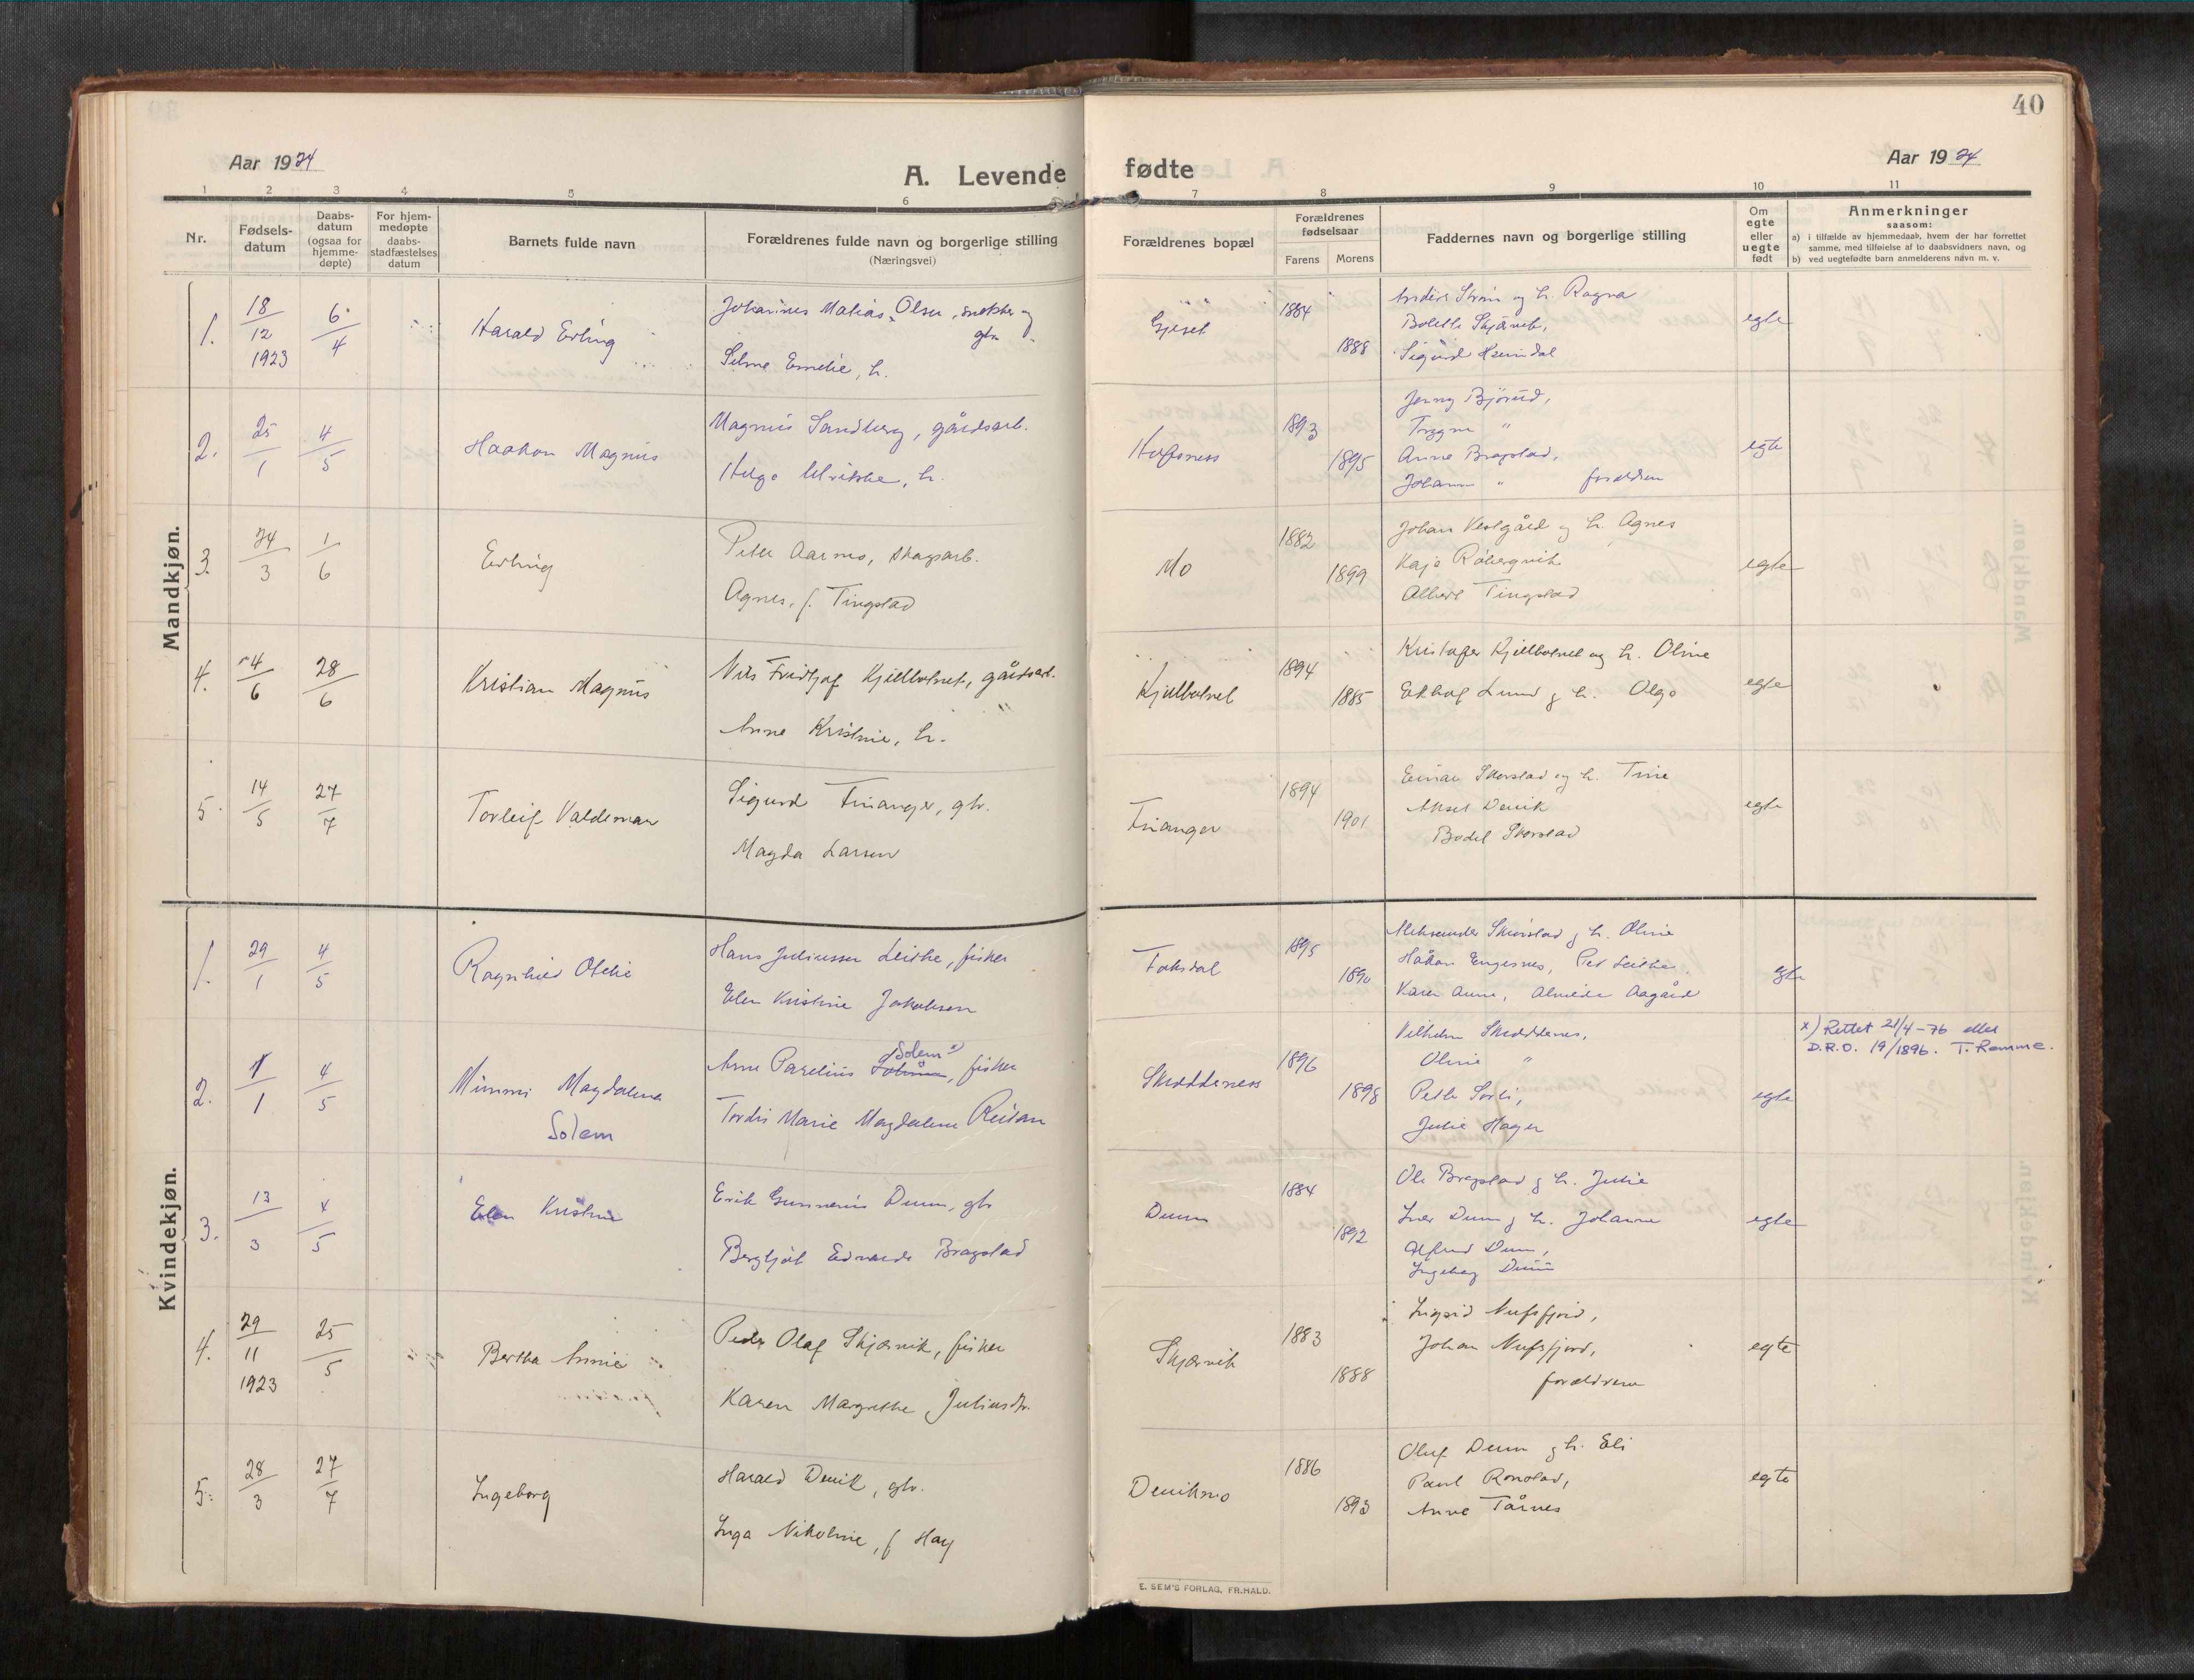 40
Aar 1924
A. Levende fødte
Aar 1924
1 2 3 4 5 6 7 8 9 10 11
Nr.
Fødsels-
datum
Daabs-
datum
(ogsaa for
hjemme-
døpte)
For hjem-
medøpte
daabs-
stadfæstelses
datum
Barnets fulde navn
Forældrenes fulde navn og borgerlige stilling
(Næringsvei)
Forældrenes bopæl
Forældrenes
fødselsaar
Farens Morens
Faddernes navn og borgerlige stilling
Om
egte
eller
uegte
født
Anmerkninger
saasom:
a) i tilfælde av hjemmedaab, hvem der har forrettet
samme, med tilføielse af to daabsvidners navn, og
b) ved uegtefødte barn anmelderens navn m. v.
Mandkjøn.
1. 18/12 1923 6/4
Harald Erling
Johannes Matias Olsen, snekker og
gbr.
Selma Emelie, h.
Gjeset
1884
1888
Anders Strøm og h. Ragna
Bolette Skjärvik,
Sigurd
egte
2. 25/1 4/5
Haakon Magnus
Magnus Sandberg, gårdsarb.
Helga Ulrikke, h.
1893
1895
Jenny Bjørud,
Trygve "
Anne Bragstad,
Johanne " forældren
egte
3. 24/3 1/6
Erling
Peter Aarmo, skogsarb.
Agnes, f. Tingstad
Mo
1882
1899
Johan Vestgård og h. Agnes
Kaja
Albert Tingstad
egte
4. 4/6 28/6
Kristian Magnus
Nils Fridtjof Kjelbotnet, gårdsarb.
Anna Kristine, h.
Kjelbotnet
1894
1885
Kristofer Kjelbotnet og h. Oline
Lund g h. Olga
egte
5. 14/5 27/7
Torleif Valdemar
Sigurd Finanger, gbr.
Magda Larsen
Finanger
1894
1901
Einar Skorstad og h. Tine
Aksel Devik
Bodil Skorstad
egte
Kvindekjøn.
1. 29/1 4/5
Ragnhild Otelie
Hans Juliussen Leithe, fisker
Elen Kristine Jakobsen
Foksdal
1895
1890
Aleksander Skorstad g h. Oline
Håkon Engesnes, Per Leithe
Karen Anne, Almida Aagård
egte
2. 1/1 4/5
Mimmi Magdalena
Solem
Solem x)
Arne Parelius, fisker
Tordis Marie Magdalene Reitan
Skredderness
1896
1898
Vilhelm Skreddernes,
Oline "
Petter Sørli,
Julie Hagen
egte
x) Rettet 21/4-76 etter
D.R.O. 19/1896. T. Remme.
3. 13/3 4/5
Elen Kristine
Erik Gunnerius Duun, gbr
Bergljot Edvarda Bragstad
Duun
1884
1892
Ole Bragstad g h. Julie
Iver Duun g h. Johanne
Alfred Duun,
Ingeborg Duun
egte
4. 29/11 1923 25/5
Bertha Annie
Peder Olaf Skjærvik, fisker
Karen Margrethe Juliusdtr.
Skjærvik
1883
1888
Sigrid Nufsfjord,
Johan Nufsfjord,
forældrene
egte
5. 28/3 27/7
Ingeborg
Harald Devik, gbr.
Inga Nikoline, f Hay
Devikmo
1886
1893
Oluf Duun g h. Eli
Paul Ronstad,
Anna Tårnes
egte
E. SEM'S FORLAG, FR.HALD.